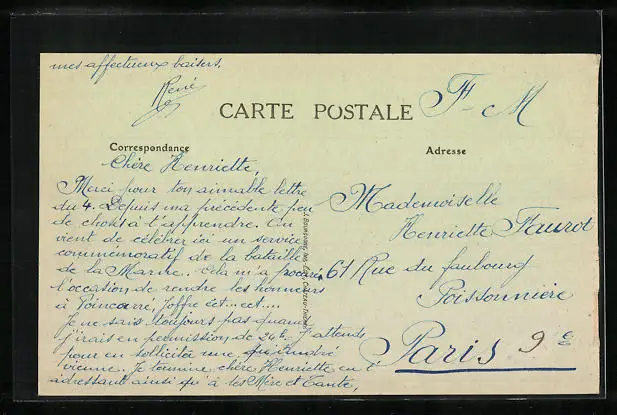 mes affectueux baisers.
René
CARTE POSTALE
F-M
Correspondance
Adresse
Chère Henriette,
Merci pour ton aimable lettre
du 4. Depuis ma précédente peu
de choses à t'apprendre. On
vient de célébrer ici un service
commémoratif de la bataille
de la Marne. Cela m'a procuré
l'occasion de rendre les honneurs
à Poincarré, Joffre ect... ect...
Je ne sais toujours pas quand
j'irais en permission de 24h. J'attends
pour en solliciter une, qu'André
vienne. Je termine, chère Henriette en t'
adressant ainsi qu'à tes Mère et Tante,
Mademoiselle
Henriette Faurot
61 Rue du faubourg
Poissonnière
Paris 9e